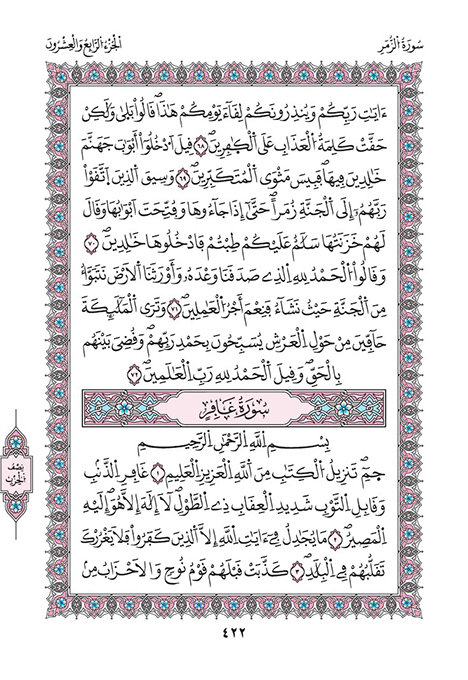 سُورَةُ الزُّمَرِ
الجُزْءُ الرَّابِعُ وَالْعِشْرُونَ
ءَايَٰتِ رَبِّكُمْ وَيُنذِرُونَكُمْ لِقَآءَ يَوْمِكُمْ هَٰذَاۖ قَالُواْ بَلَىٰ وَلَٰكِنْ
حَقَّتْ كَلِمَةُ اُلْعَذَابِ عَلَى اَلْكٰ۪فِرِينَۖ ٦٨ قِيلَ اَدْخُلُوٓاْ أَبْوَٰبَ جَهَنَّمَ
خَٰلِدِينَ فِيهَاۖ فَبِيسَ مَثْوَى اَلْمُتَكَبِّرِينَۖ ٦٩ وَسِيقَ اَلذِينَ اَتَّقَوْاْ
رَبَّهُمُۥٓ إِلَى اَلْجَنَّةِ زُمَراًۖ حَتَّىٰٓ إِذَا جَآءُوهَا وَفُتِّحَتَ اَبْوَٰبُهَا وَقَالَ
لَهُمْ خَزَنَتُهَا سَلَٰمٌ عَلَيْكُمْ طِبْتُمْ فَادْخُلُوهَا خَٰلِدِينَۖ ٧٠
وَقَالُواْ اُلْحَمْدُ لِلهِ اِلذِے صَدَقَنَا وَعْدَهُۥ وَأَوْرَثَنَا اَلَارْضَ نَتَبَوَّأُ
مِنَ اَلْجَنَّةِ حَيْثُ نَشَآءُ فَنِعْمَ أَجْرُ اُلْعَٰمِلِينَۖ ٧١ وَتَرَى اَلْمَلَٰٓئِكَةَ
حَآفِّينَ مِنْ حَوْلِ اِلْعَرْشِ يُسَبِّحُونَ بِحَمْدِ رَبِّهِمْۖ وَقُضِيَ بَيْنَهُم
بِالْحَقِّۖ وَقِيلَ اَلْحَمْدُ لِلهِ رَبِّ اِلْعَٰلَمِينَۖ ٧٢
سُورَةُ غَافِرٍ
بِسْمِ اِللَّهِ اِلرَّحْمَٰنِ اِلرَّحِيمِ
حٰ۪مٓۖ تَنزِيلُ اُلْكِتَٰبِ مِنَ اَللَّهِ اِلْعَزِيزِ اِلْعَلِيمِ ١ غَافِرِ اِلذَّنۢبِ
وَقَابِلِ اِلتَّوْبِ شَدِيدِ اِلْعِقَابِ ذِے اِلطَّوْلِۖ لَآ إِلَٰهَ إِلَّا هُوَۖ إِلَيْهِ
اِلْمَصِيرُۖ ٢ مَا يُجَٰدِلُ فِےٓ ءَايَٰتِ اِللَّهِ إِلَّا اَلذِينَ كَفَرُواْۖ فَلَا يَغْرُرْكَ
تَقَلُّبُهُمْ فِے اِلْبِلَٰدِۖ ٣ كَذَّبَتْ قَبْلَهُمْ قَوْمُ نُوحٍ وَالَاحْزَابُ مِنۢ
نِصْف
الْحِزْبِ
٤٢٢